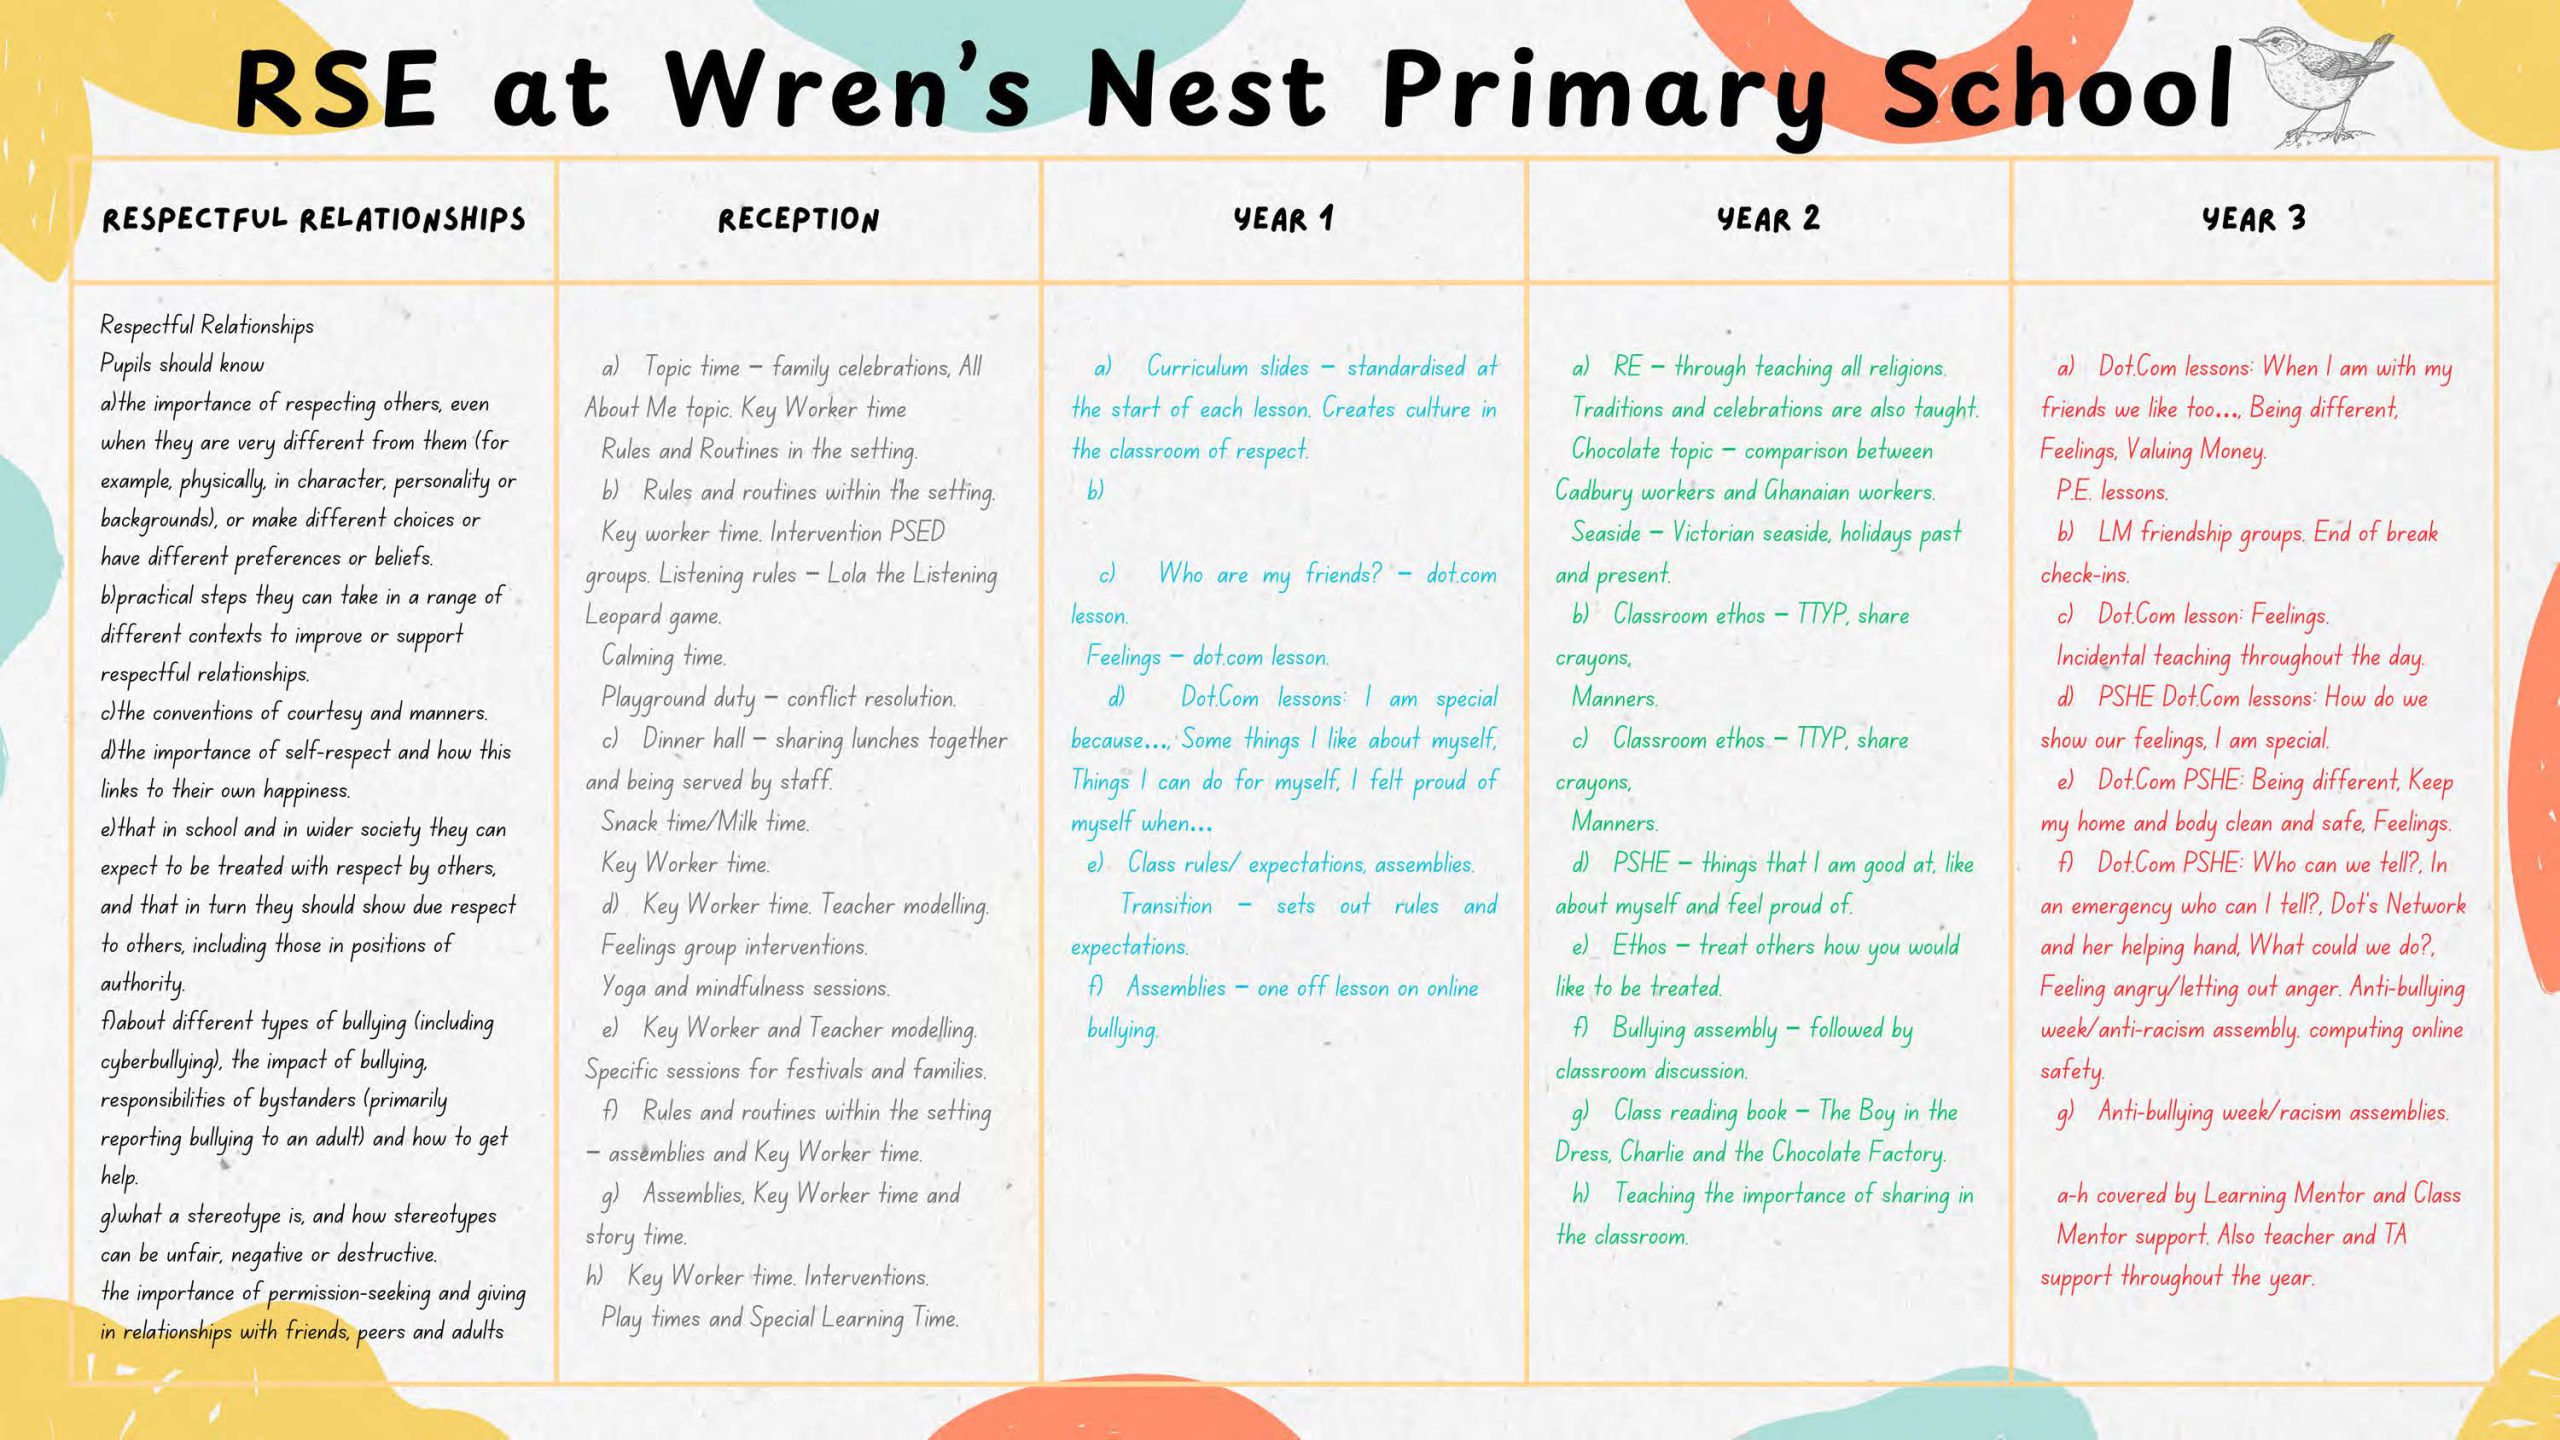 RSE at Wren's Nest Primary School
RESPECTFUL RELATIONSHIPS
RECEPTION
YEAR 1
YEAR 2
YEAR 3
Respectful Relationships
Pupils should know
a)the importance of respecting others, even
when they are very different from them (for
example, physically, in character, personality or
backgrounds), or make different choices or
have different preferences or beliefs.
b)practical steps they can take in a range of
different contexts to improve or support
respectful relationships.
c)the conventions of courtesy and manners.
d)the importance of self-respect and how this
links to their own happiness.
e)that in school and in wider society they can
expect to be treated with respect by others,
and that in turn they should show due respect
to others, including those in positions of
authority.
f)about different types of bullying (including
cyberbullying), the impact of bullying,
responsibilities of bystanders (primarily
reporting bullying to an adult) and how to get
help.
g)what a stereotype is, and how stereotypes
can be unfair, negative or destructive.
the importance of permission-seeking and giving
in relationships with friends, peers and adults
a) Topic time – family celebrations, All
About Me topic. Key Worker time
Rules and Routines in the setting.
b) Rules and routines within the setting.
Key worker time. Intervention PSED
groups. Listening rules – Lola the Listening
Leopard game.
Calming time.
Playground duty – conflict resolution.
c) Dinner hall – sharing lunches together
and being served by staff.
Snack time/Milk time.
Key Worker time.
d) Key Worker time. Teacher modelling.
Feelings group interventions.
Yoga and mindfulness sessions.
e) Key Worker and Teacher modelling.
Specific sessions for festivals and families.
f) Rules and routines within the setting
– assemblies and Key Worker time.
g) Assemblies, Key Worker time and
story time.
h) Key Worker time. Interventions.
Play times and Special Learning Time.
a) Curriculum slides – standardised at
the start of each lesson. Creates culture in
the classroom of respect.
b)
c) Who are my friends? – dot.com
lesson.
Feelings – dot.com lesson.
d) Dot.Com lessons: I am special
because..., Some things I like about myself,
Things I can do for myself, I felt proud of
myself when...
e) Class rules/ expectations, assemblies.
Transition – sets out rules and
expectations.
f) Assemblies – one off lesson on online
bullying.
a) RE – through teaching all religions.
Traditions and celebrations are also taught.
Chocolate topic – comparison between
Cadbury workers and Ghanaian workers.
Seaside – Victorian seaside, holidays past
and present.
b) Classroom ethos – TTYP, share
crayons,
Manners.
c) Classroom ethos – TTYP, share
crayons,
Manners.
d) PSHE – things that I am good at, like
about myself and feel proud of.
e) Ethos – treat others how you would
like to be treated.
f) Bullying assembly – followed by
classroom discussion.
g) Class reading book – The Boy in the
Dress, Charlie and the Chocolate Factory.
h) Teaching the importance of sharing in
the classroom.
a) Dot.Com lessons: When I am with my
friends we like too..., Being different,
Feelings, Valuing Money.
P.E. lessons.
b) LM friendship groups. End of break
check-ins.
c) Dot.Com lesson: Feelings.
Incidental teaching throughout the day.
d) PSHE Dot.Com lessons: How do we
show our feelings, I am special.
e) Dot.Com PSHE: Being different, Keep
my home and body clean and safe, Feelings.
f) Dot.Com PSHE: Who can we tell?, In
an emergency who can I tell?, Dot's Network
and her helping hand, What could we do?,
Feeling angry/letting out anger. Anti-bullying
week/anti-racism assembly. computing online
safety.
g) Anti-bullying week/racism assemblies.
a-h covered by Learning Mentor and Class
Mentor support. Also teacher and TA
support throughout the year.